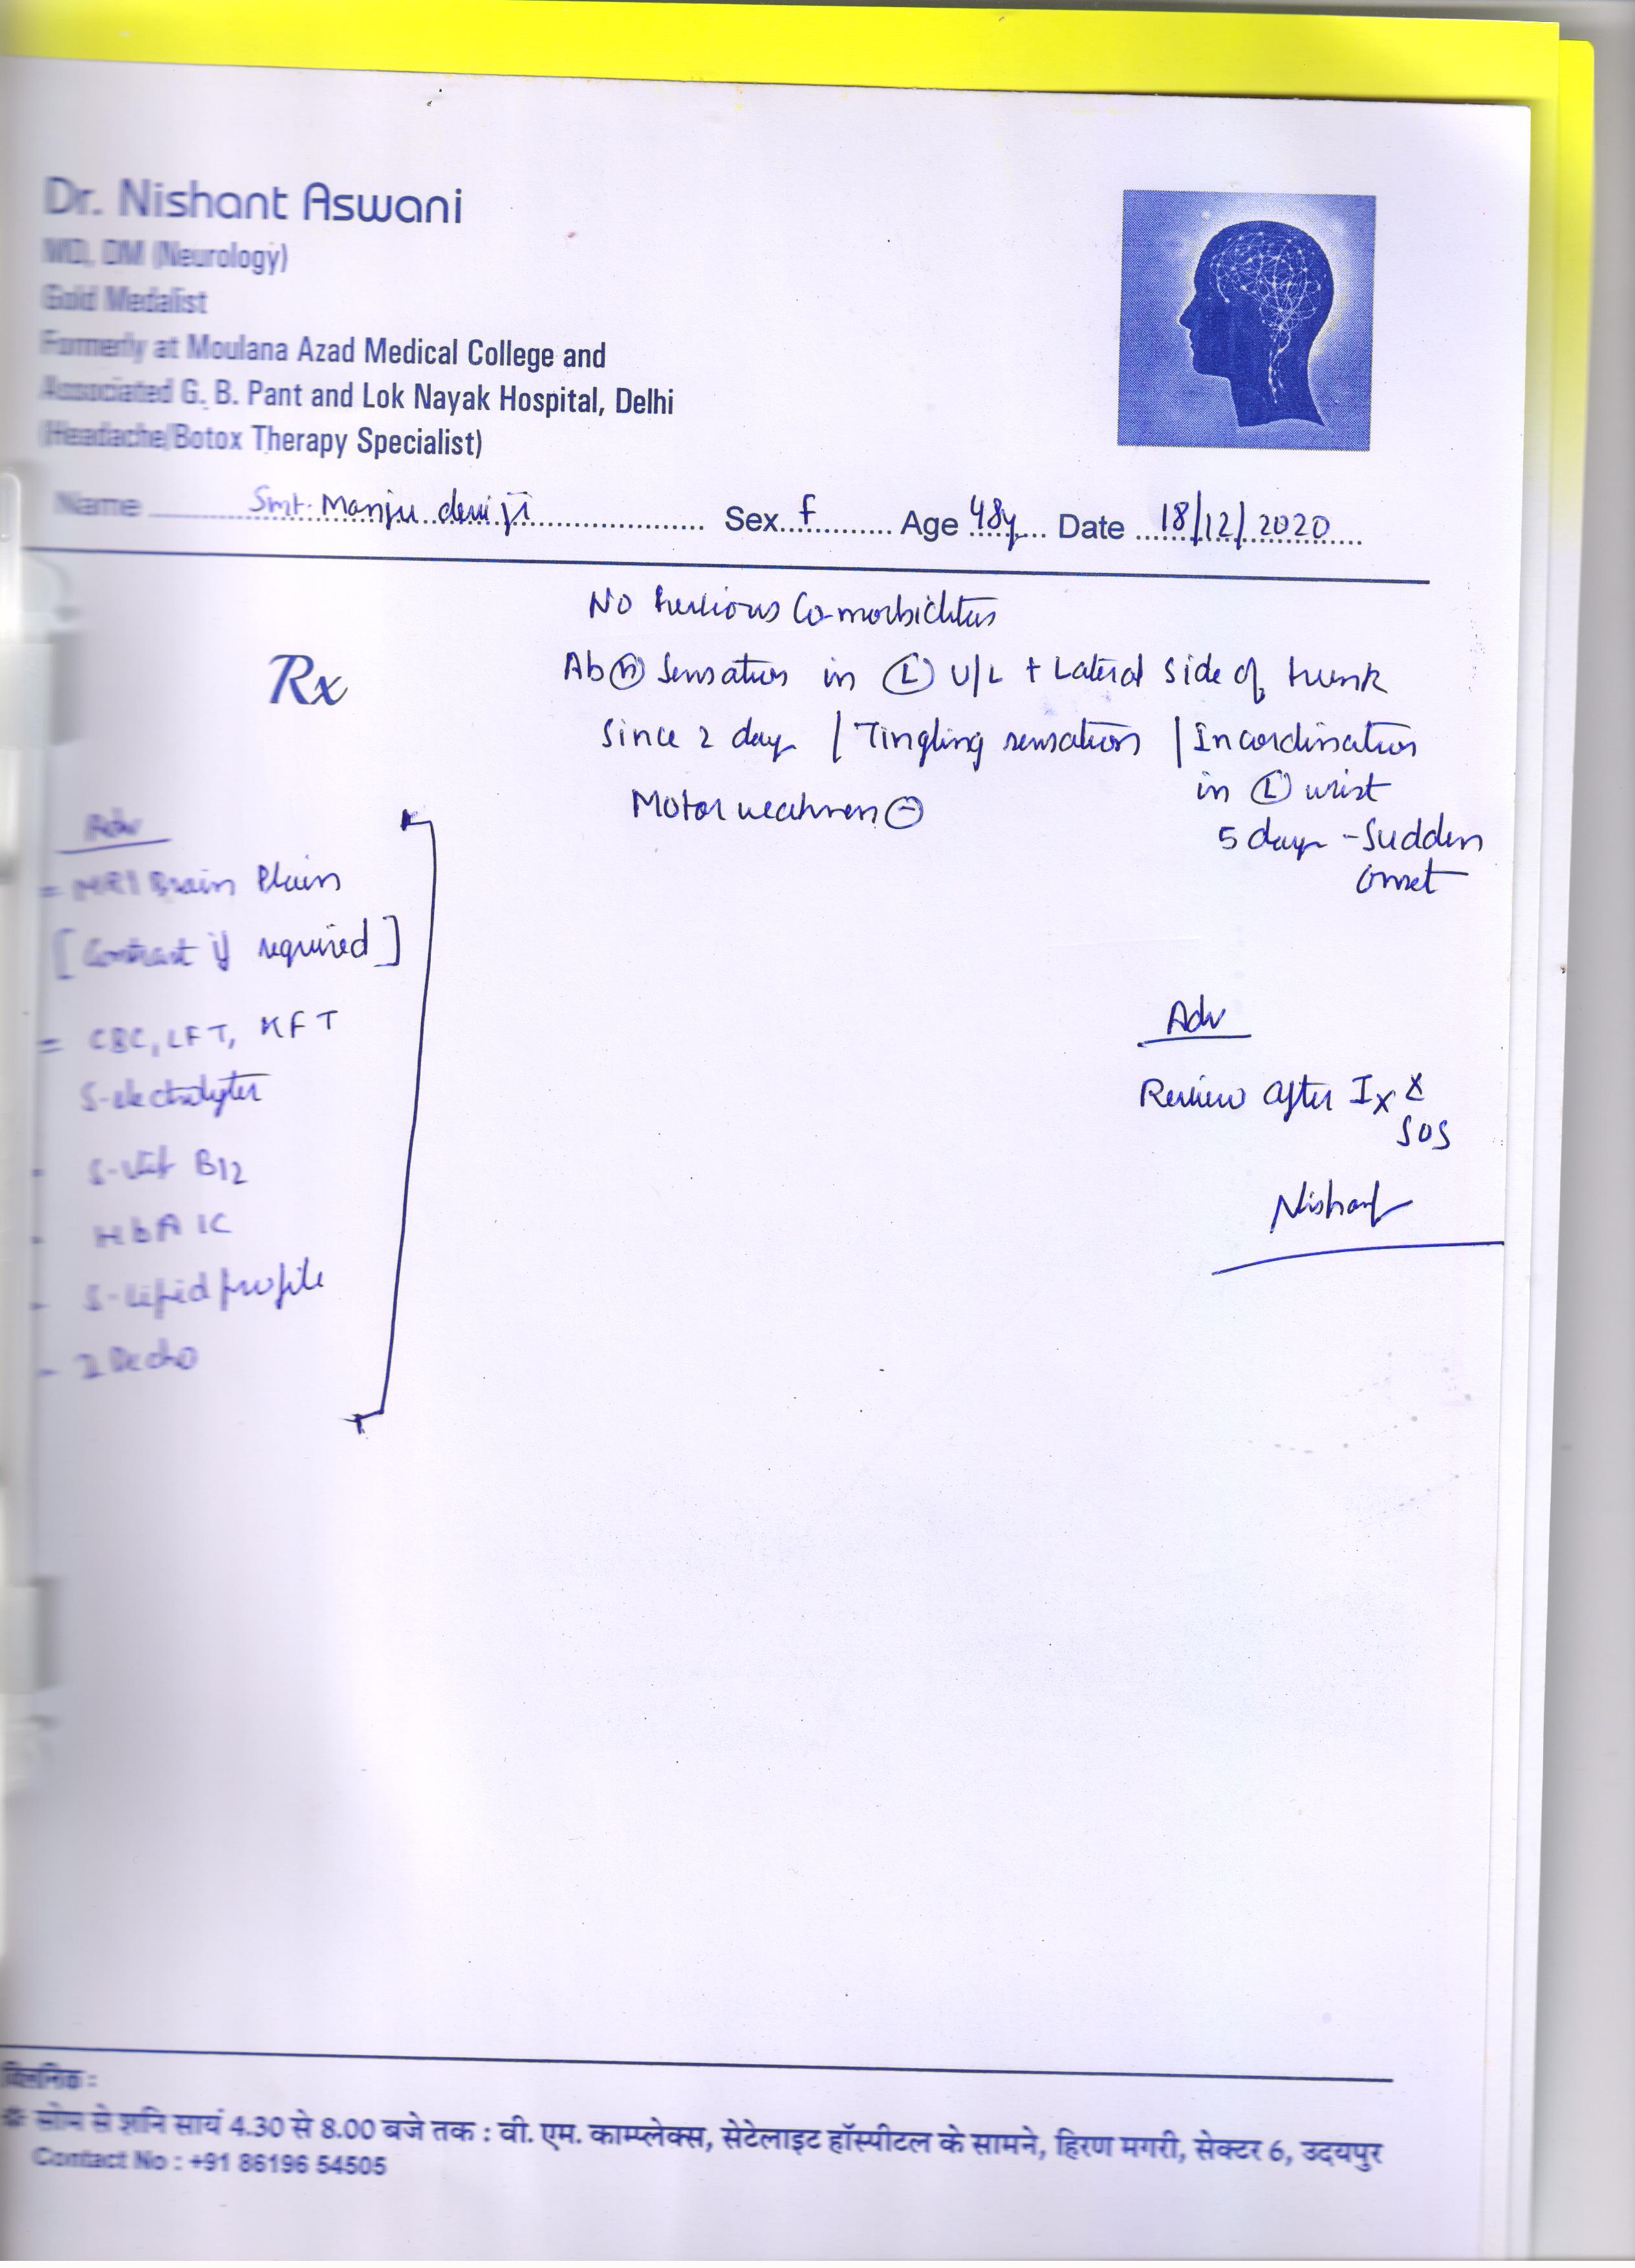 Dr. Nishant Aswani
MD, DM (Neurology)
Gold Medalist
Formerly at Moulana Azad Medical College and
Associated G. B. Pant and Lok Nayak Hospital, Delhi
(Headache/Botox Therapy Specialist)
Name Smt. Manju devi ji Sex f Age 48y Date 18/12/2020
No Previous Co-morbidities
Rx
Ab(n) Sensation in (L) U/L + Lateral side of trunk
Since 2 days | Tingling sensation | Incordination
in (L) wrist
Motor weakness (-)
5 days - Sudden
onset
Adv
= MRI Brain Plain
[Contrast if required]
= CBC, LFT, KFT
S-electrolytes
- S-Vit B12
- HbA1C
- S-lipid profile
- 2Decho
Adv
Review after Ix &
SOS
Nishant
क्लिनिक :
सोम से शनि सायं 4.30 से 8.00 बजे तक : वी. एम. काम्प्लेक्स, सेटेलाइट हॉस्पीटल के सामने, हिरण मगरी, सेक्टर 6, उदयपुर
Contact No : +91 86196 54505